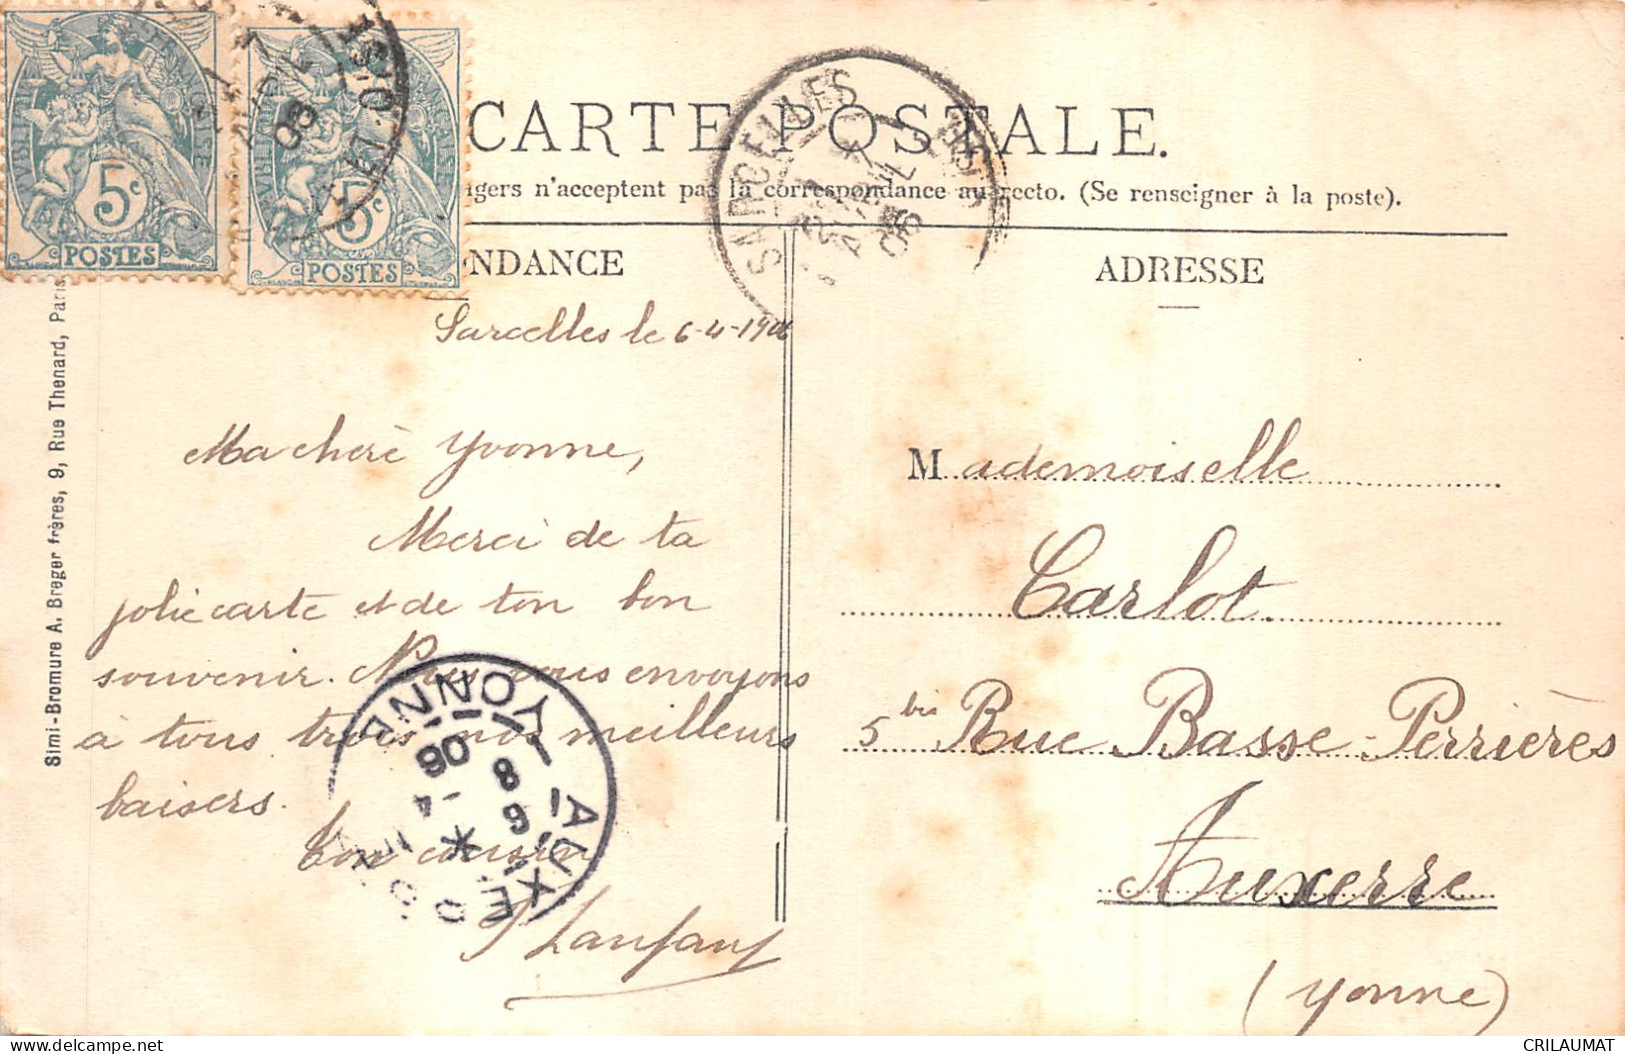 5c
POSTES
5c
POSTES
AVRIL
06
CARTE POSTALE.
SARCELLES
AVRIL
06
gers n'acceptent pas la correspondance au recto. (Se renseigner à la poste).
NDANCE
ADRESSE
Sarcelles le 6-4-1906
Ma chère Yvonne,
Merci de ta
jolie carte et de ton bon
souvenir. Nous vous envoyons
à tous trois nos meilleurs
baisers.
Ton cousin
AUXERRE
YONNE
8
-4
06
Mademoiselle
Carlot
5 bis Rue Basse-Perrières
Auxerre
(Yonne)
Simi-Bromure A. Breger frères, 9, Rue Thenard, Paris
CRILAUMAT